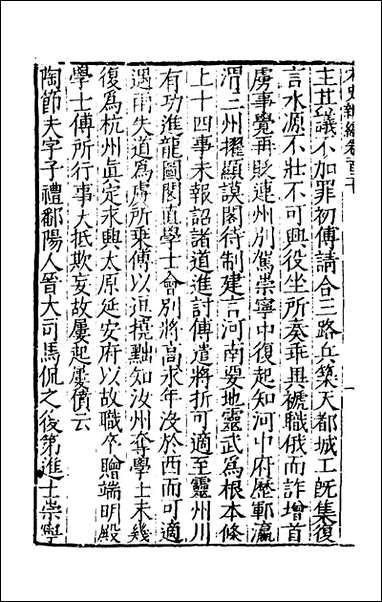 宋史新編卷百十
主其議不加罪初傅請合三路兵築天都城工既集復
言水源不壯不可興役坐所奏乖異褫職俄而詐增首
虜事覺再貶連州別駕崇寧中復起知河中府歷鄆瀛
渭三州擢顯謨閣待制建言河南要地靈武爲根本條
上十四事未報詔諸道進討傅遣將折可適至靈州川
有功進龍圖閣直學士會別將高永年沒於西而可適
遇雨失道爲虜所乘傅以逗撓黜知汝州奪學士未幾
復爲杭州眞定永興太原延安府以故職卒贈端明殿
學士傅所行事大抵欺妄故屢起屢僨云
陶節夫字子禮鄱陽人晉大司馬侃之後第進士崇寧